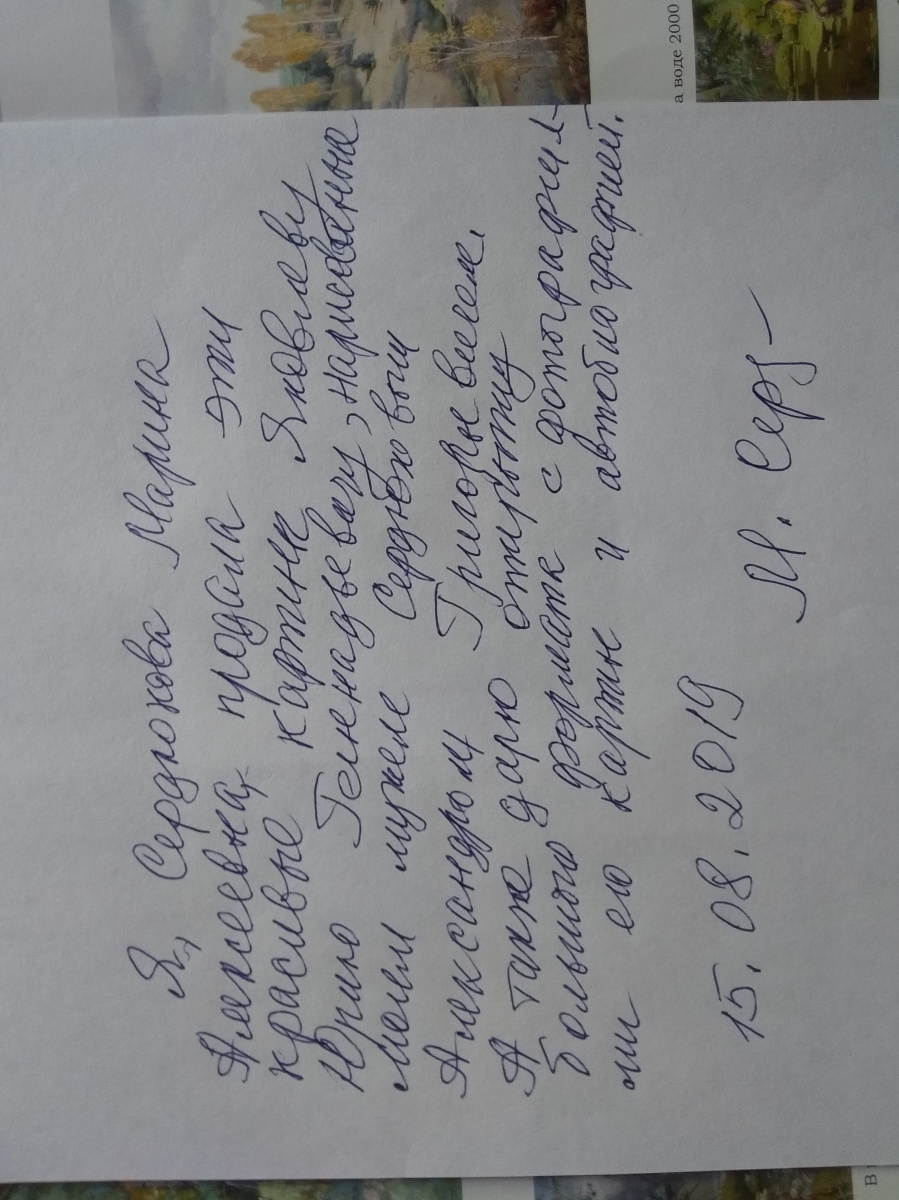 Я, Сердюкова Марина
Алексеевна, продала эти
красивые картины Яковлеву
Юрию Геннадьевичу, нарисованные
моим мужем Сердюковым
Александром Григорьевичем.
А также дарю открытку
большого формата с фотография-
ми его картин и автобиографией.
15.08.2019 М. Серд
а воде 2000
В